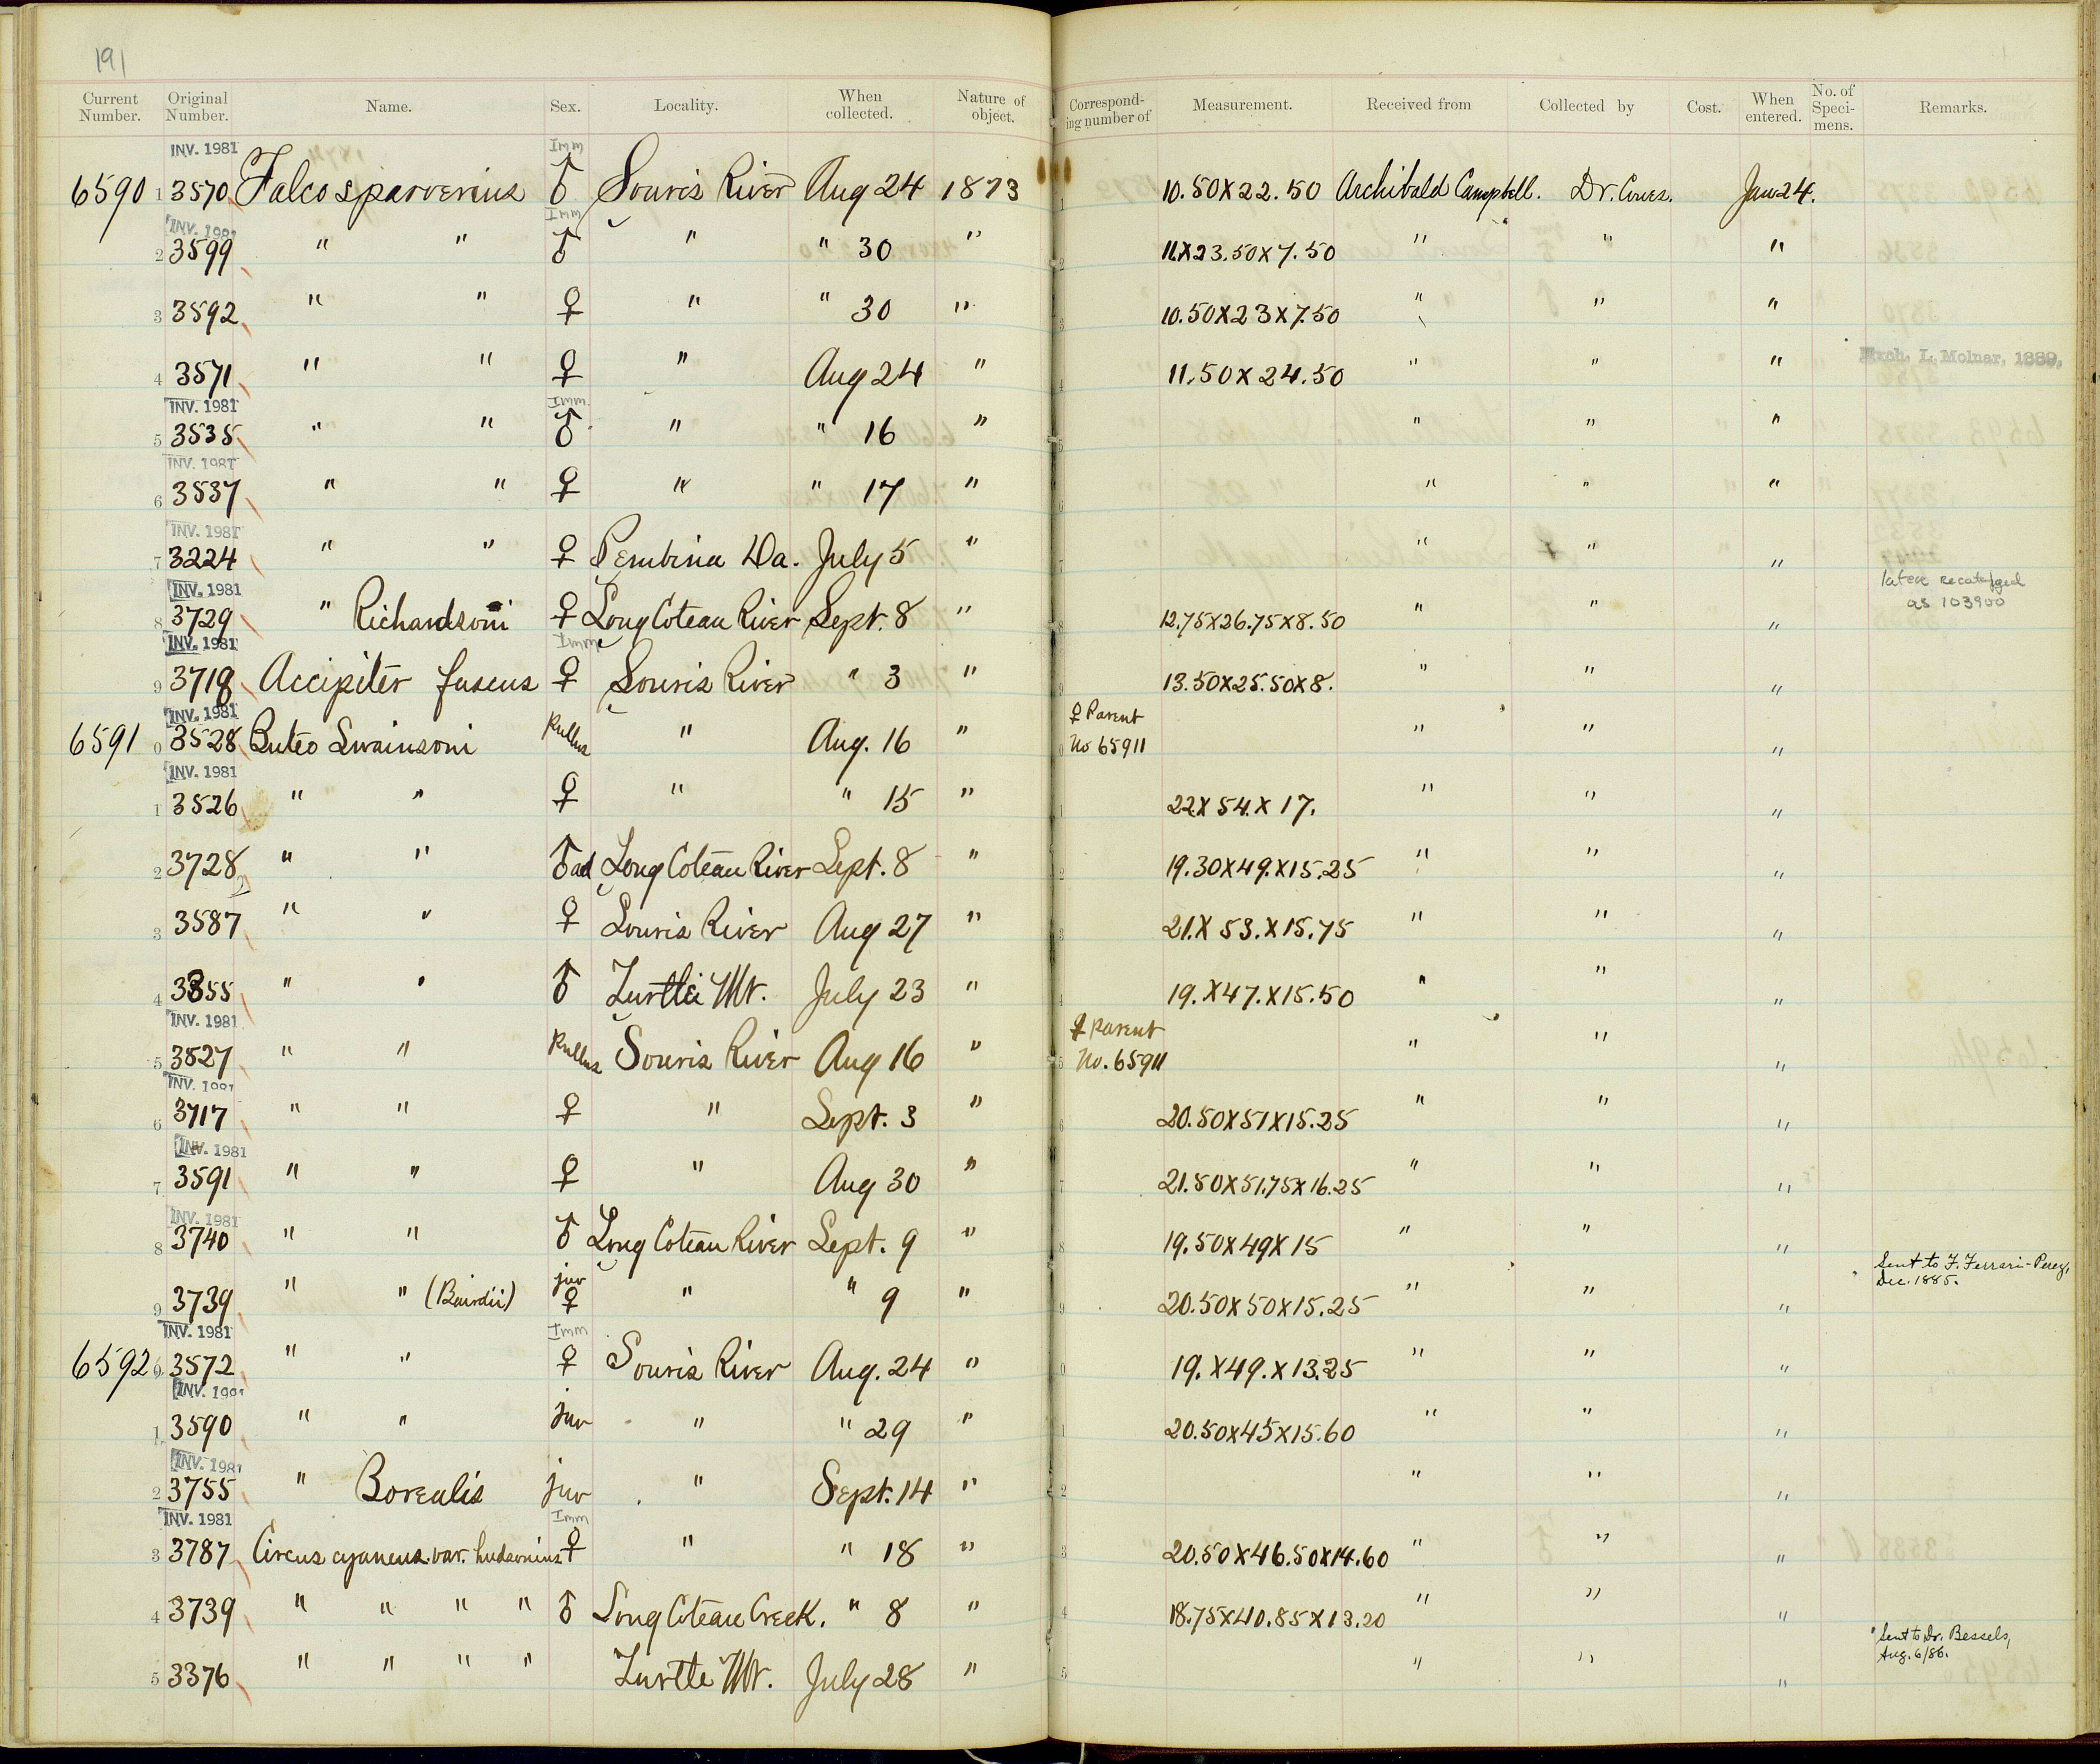 191
Current Number. Original Number. Name. Sex. Locality. When collected. Nature of object. Corresponding number of Measurement. Received from Collected by Cost. When entered. No. of Specimens. Remarks.
INV. 1981 Imm
6590 1 3570 Falco sparverius ♂ Souris River Aug 24 1873 1 10.50X22.50 Archibald Campbell. Dr. Coues. Jan 24.
INV. 1981 Imm
2 3599 " " ♂ " " 30 " 2 11.X23.50X7.50 " " "
3 3592 " " ♀ " " 30 " 3 10.50X23X7.50 " " "
4 3571 " " ♀ " Aug 24 " 4 11.50X24.50 " " " Exch. L. Molnar, 1889.
INV. 1981 Imm.
5 3535 " " ♂ " " 16 " 5 " " "
INV. 1981
6 3537 " " ♀ " " 17 " 6 " " "
INV. 1981
7 3224 " " ♀ Pembina Da. July 5 " 7 " " "
INV. 1981 later recataloged as 103900
8 3729 " Richardsoni ♀ Long Coteau River Sept. 8 " 8 12.75X26.75X8.50 " " "
INV. 1981 Imm
9 3718 Accipiter fuscus ♀ Souris River " 3 " 9 13.50X25.50X8. " " "
INV. 1981 ♀ Parent
6591 0 3528 Buteo Swainsoni Pullus " Aug. 16 " 0 No 65911 " " "
INV. 1981
1 3526 " " ♀ " " 15 " 1 22X54.X17. " " "
2 3728 " " ♂ ad Long Coteau River Sept. 8 " 2 19.30X49.X15.25 " " "
3 3587 " " ♀ Souris River Aug 27 " 3 21.X53.X15.75 " " "
4 3355 " " ♂ Turtle Mt. July 23 " 4 19.X47.X15.50 " " "
INV. 1981 ♀ Parent
5 3527 " " Pullus Souris River Aug 16 " 5 No. 65911 " " "
INV. 1981
6 3717 " " ♀ " Sept. 3 " 6 20.50X51X15.25 " " "
INV. 1981
7 3591 " " ♀ " Aug 30 " 7 21.50X51.75X16.25 " " "
INV. 1981
8 3740 " " ♂ Long Coteau River Sept. 9 " 8 19.50X49X15 " " "
juv Sent to F. Ferrari-Perez, Dec. 1885.
9 3739 " " (Bairdii) ♀ " " 9 " 9 20.50X50X15.25 " " "
INV. 1981 Imm
6592 0 3572 " " ♀ Souris River Aug. 24 " 0 19.X49.X13.25 " " "
INV. 1981
1 3590 " " juv " " 29 " 1 20.50X45X15.60 " " "
INV. 1981
2 3755 " Borealis juv " Sept. 14 " 2 " " "
INV. 1981 Imm
3 3787 Circus cyaneus var. hudsonius ♀ " " 18 " 3 20.50X46.50X14.60 " " "
4 3739 " " " " ♂ Long Coteau Creek. " 8 " 4 18.75X40.85X13.20 " " "
Sent to Dr. Bessels, Aug. 6/86.
5 3376 " " " " Turtle Mt. July 28 " 5 " " "